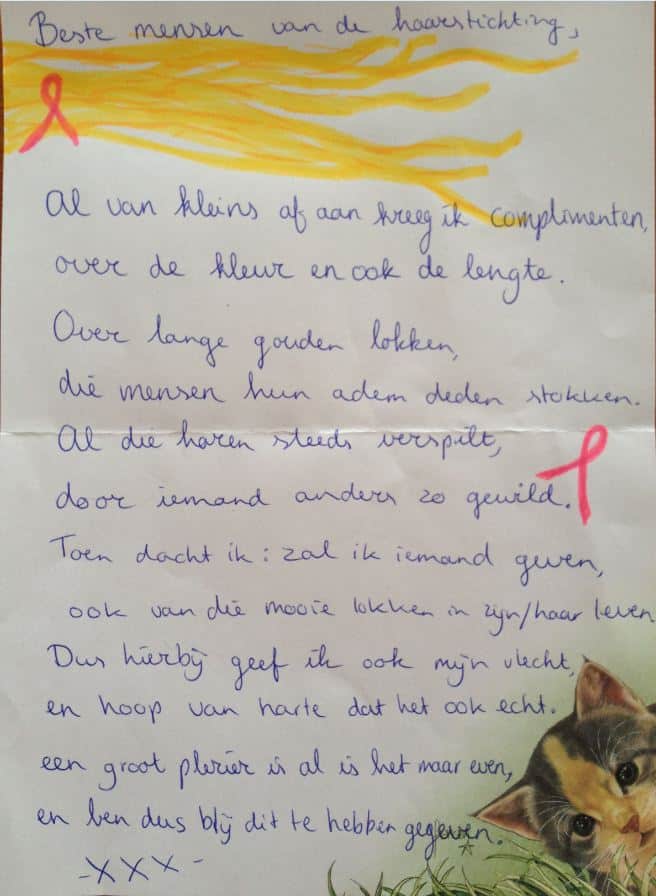 Beste mensen van de haarstichting,
Al van kleins af aan kreeg ik complimenten,
over de kleur en ook de lengte.
Over lange gouden lokken,
die mensen hun adem deden stokken.
Al die haren steeds verspilt,
door iemand anders zo gewild.
Toen dacht ik: zal ik iemand geven,
ook van die mooie lokken in zijn/haar leven
Dus hierbij geef ik ook mijn vlecht,
en hoop van harte dat het ook echt.
een groot plezier is al is het maar even,
en ben dus blij dit te hebben gegeven.
-XXX-